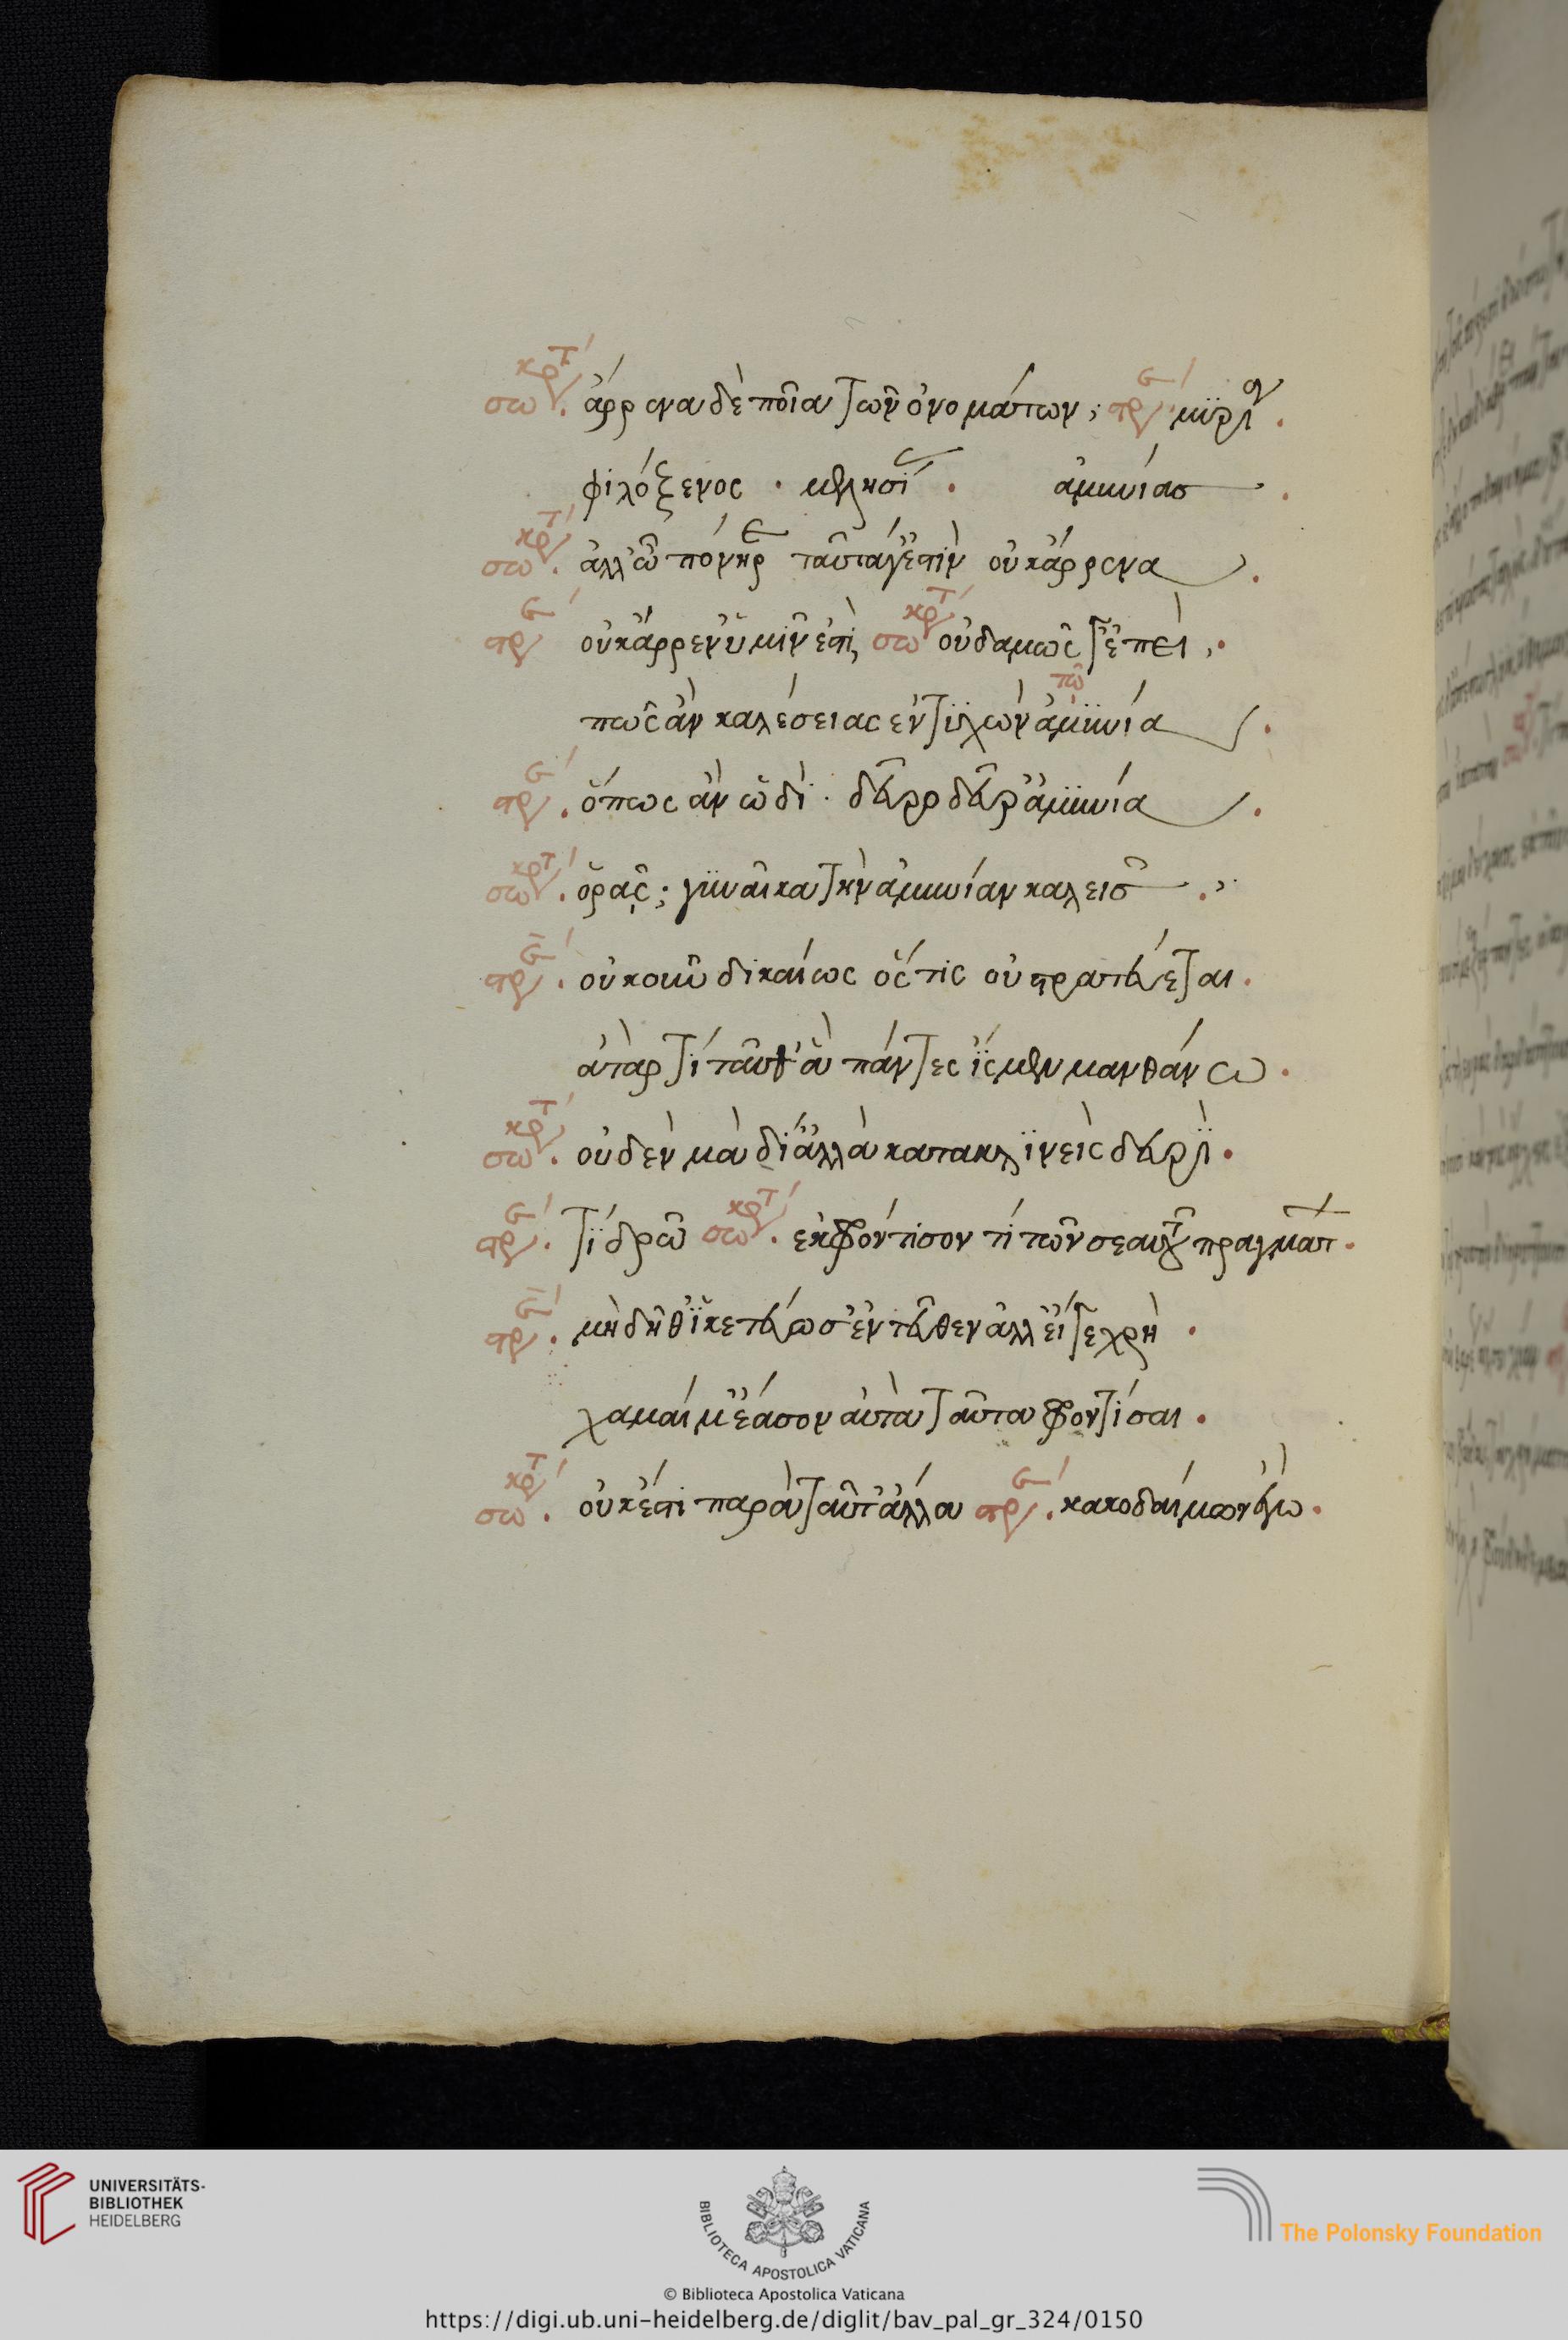 σωκρτ. ἄρρενα δὲ ποῖα τῶν ὀνομάτων; στρ. μυρί.
φιλόξενος · μελησί · ἀμυνίας .
σωκρτ. ἀλλ' ὦ πόνηρε ταῦτα γ' ἔστὶν οὐκ ἄρρενα .
στρ οὐκ ἄρρεν ὑμῖν ἐστὶ, σωκρτ οὐδαμῶς γ' ἐπεὶ,.
πῶς ἂν καλέσειας ἐντυχὼν ἀμυνία .
πῶ
στρ. ὅπως ἂν ὡδὶ · δεῦρο δεῦρ' ἀμυνία .
σωκρτ. ὁρᾷς; γυναῖκα τὴν ἀμυνίαν καλεῖς .
στρ. οὐκουν δικαίως ὅς τις οὐ στρατεύεται .
ἀτὰρ τί ταῦθ' ἃ πάντες ἴσμεν μανθάνω .
σωκρτ. οὐδὲν μὰ δί' ἀλλὰ κατακλινεὶς δευρὶ .
στρ. τί δρῶ σωκρτ. ἐκφρόντισον τί τῶν σεαυτοῦ πραγμάτ .
στρ. μὴ δῆθ' ἱκετεύω σ' ἐνταῦθεν ἀλλ' εἴ γε χρὴ .
χαμαί μ' ἔασον αὐτὰ ταῦτα φροντίσαι .
σωκρτ. οὐκ ἔστι παρὰ ταῦτ' ἄλλα στρ. κακοδαίμων ἐγὼ .
UNIVERSITÄTS-
BIBLIOTHEK
HEIDELBERG
BIBLIOTECA APOSTOLICA VATICANA
The Polonsky Foundation
© Biblioteca Apostolica Vaticana
https://digi.ub.uni-heidelberg.de/diglit/bav_pal_gr_324/0150